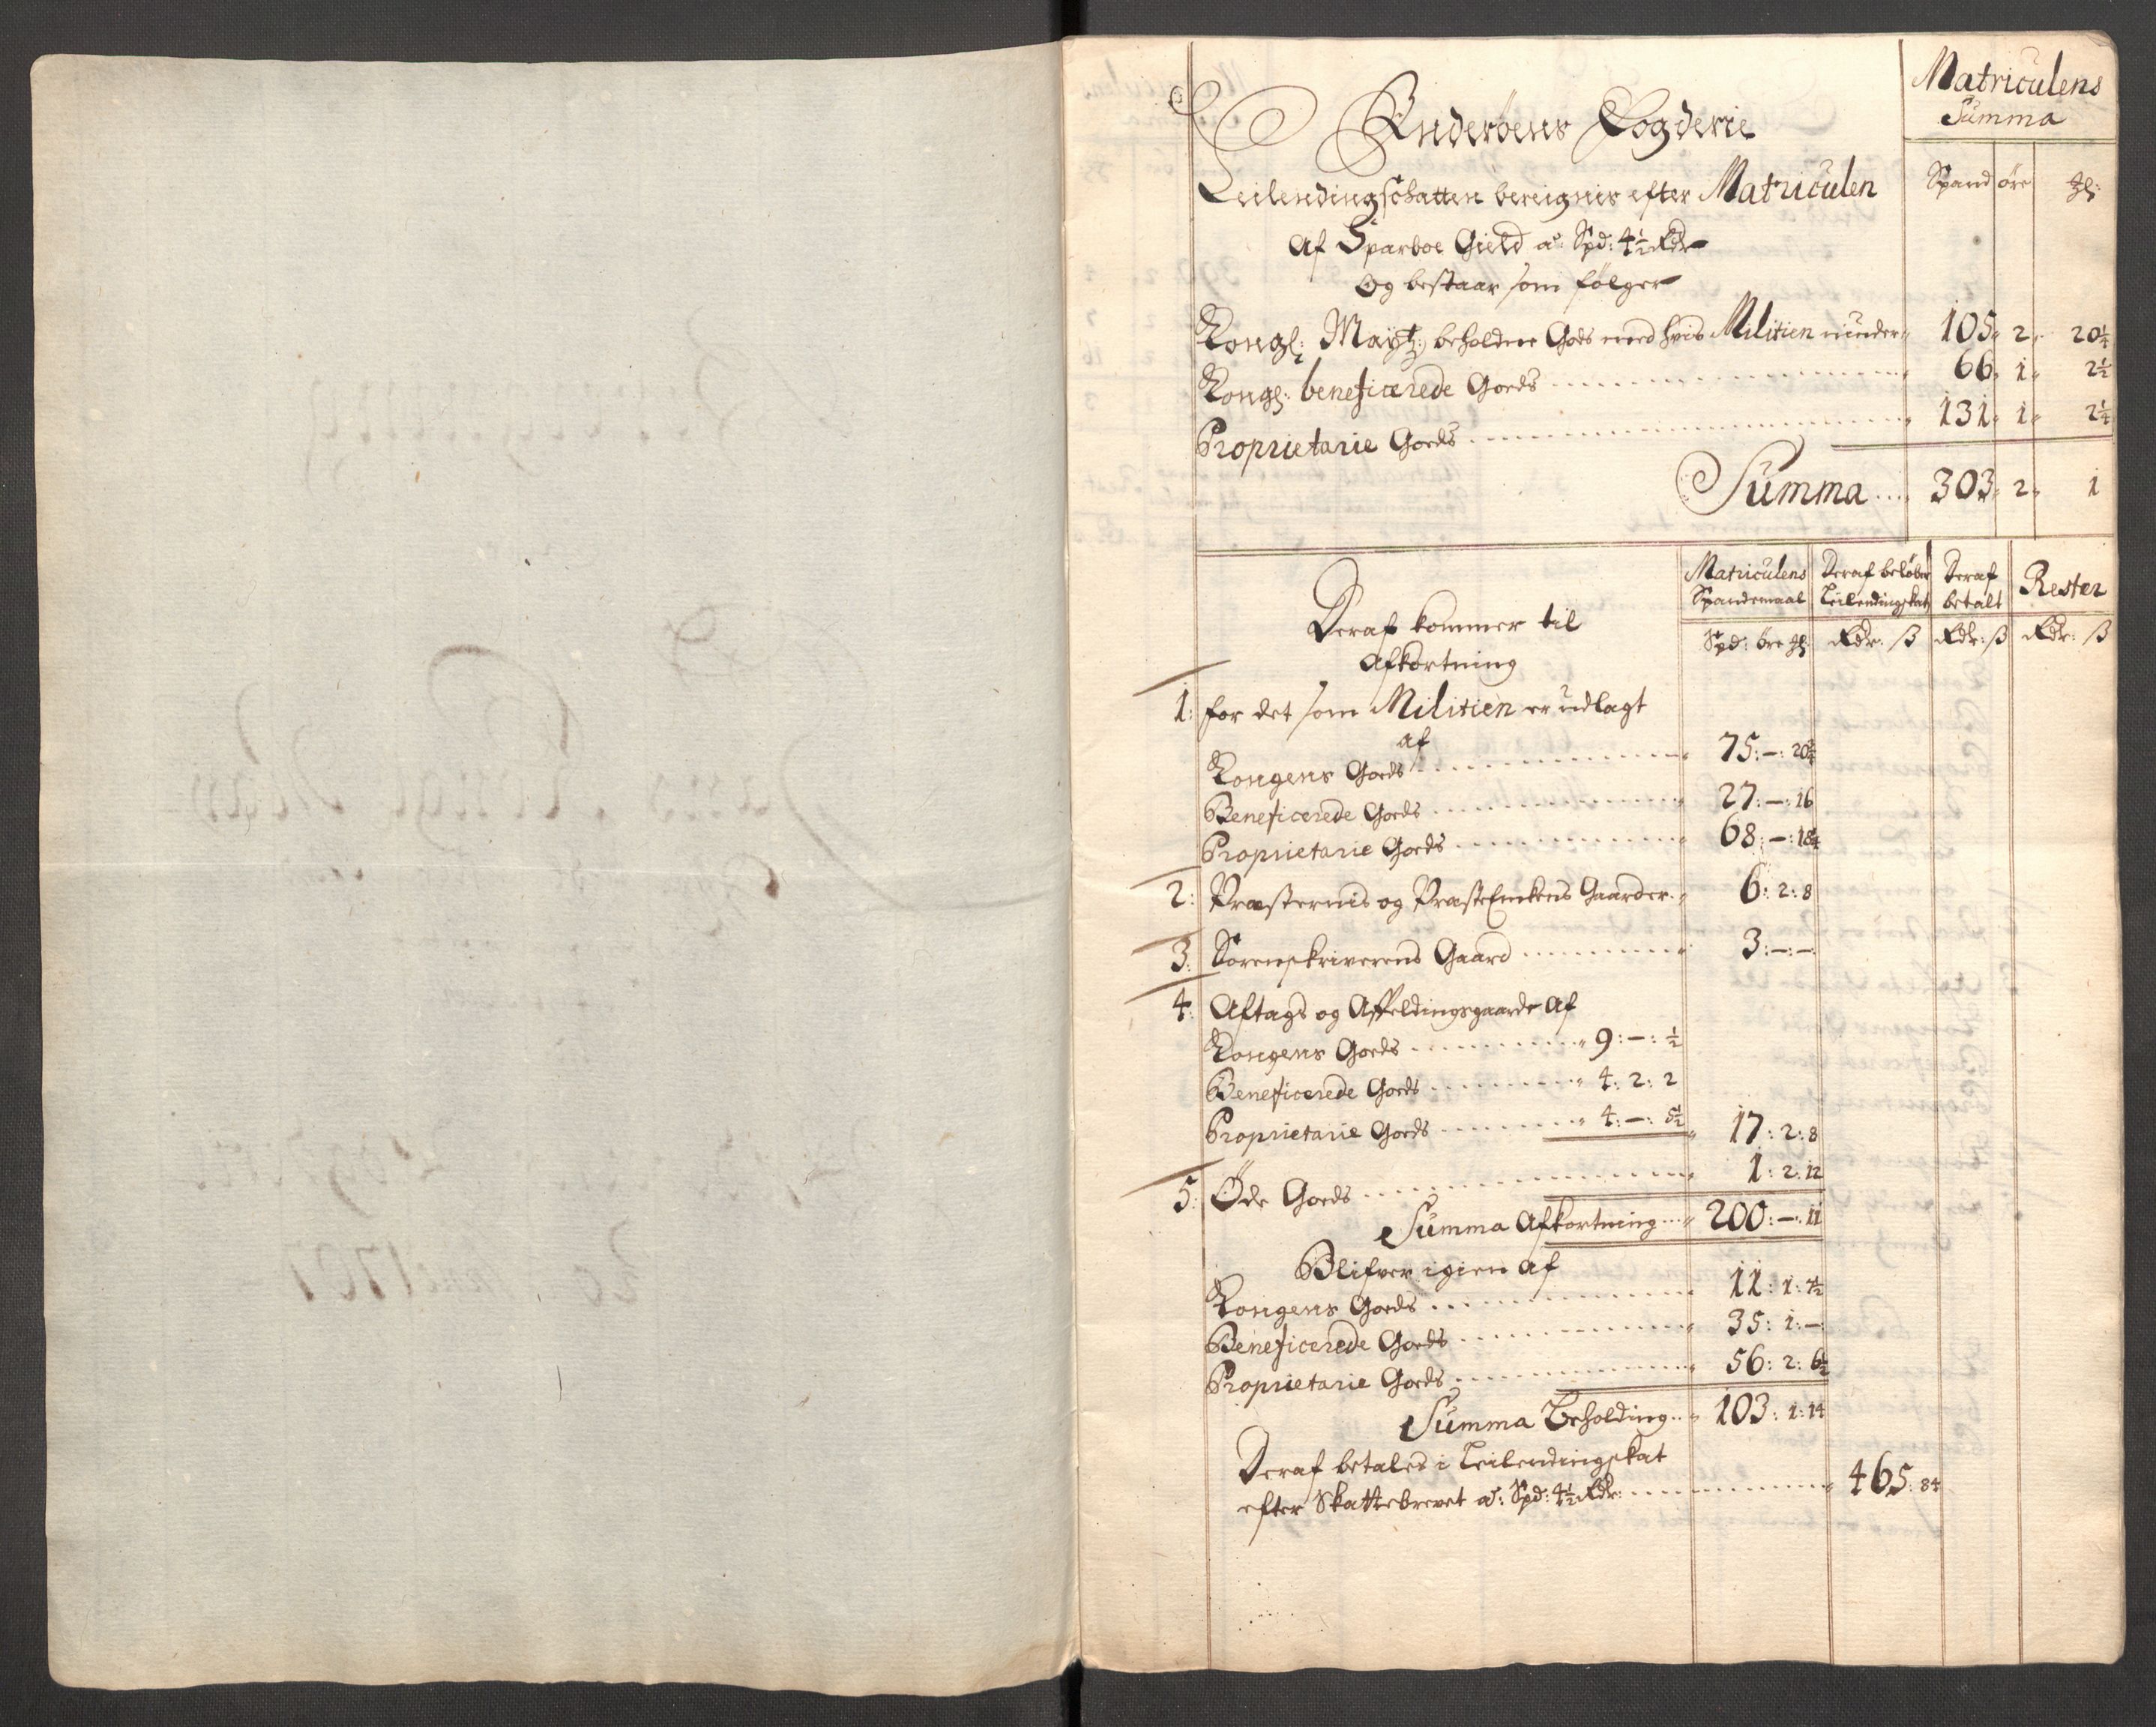 Matriculens
Summa
Inderöens Fogderie
Leilendingschatten bereignis efter Matriculen
Spand öre
Af Sparboe Gield a: Spd: 4½ Rdr
Og bestaar som følger
Kongl: Mayt: beholdne Gods med hvis Militien niuder 105 2 20¼
Kongl: beneficerede Goeds 66 1 2½
Proprietarie Goeds 131 1 2¼
Summa 303 2 1
Matriculens Spandemaal
Deraf beløber Leilendingskat
Deraf betalt
Rester
Spd: öre
Rdr: ß
Rdr: ß
Rdr: ß
Deraf kommer til
Afkortning
1: for det som Militien er udlagt
af
Kongens Goeds 75:-:20¾
Beneficerede Goeds 27:-:16
Proprietarie Goeds 68:-:18¼
2: Præsternis og PræstEnkens Gaarder 6:2:8
3: Sorenskriverens Gaard 3:-:-
4: Aftags og Affeldingsgaarde Af
Kongens Goeds 9:-:½
Beneficerede Goeds 4:2:2
Proprietarie Goeds 4:-:5½ 17:2:8
5: Öde Goeds 1:2:12
Summa Afkortning 200:-:11
Blifver igien Af
Kongens Goeds 11:1:7½
Beneficerede Goeds 35:1:-
Proprietarie Goeds 56:2:6½
Summa Beholding 103:1:14
Deraf betales i Leilendingskat
efter Skattebrevet a: Spd: 4½ Rdr: 465:84